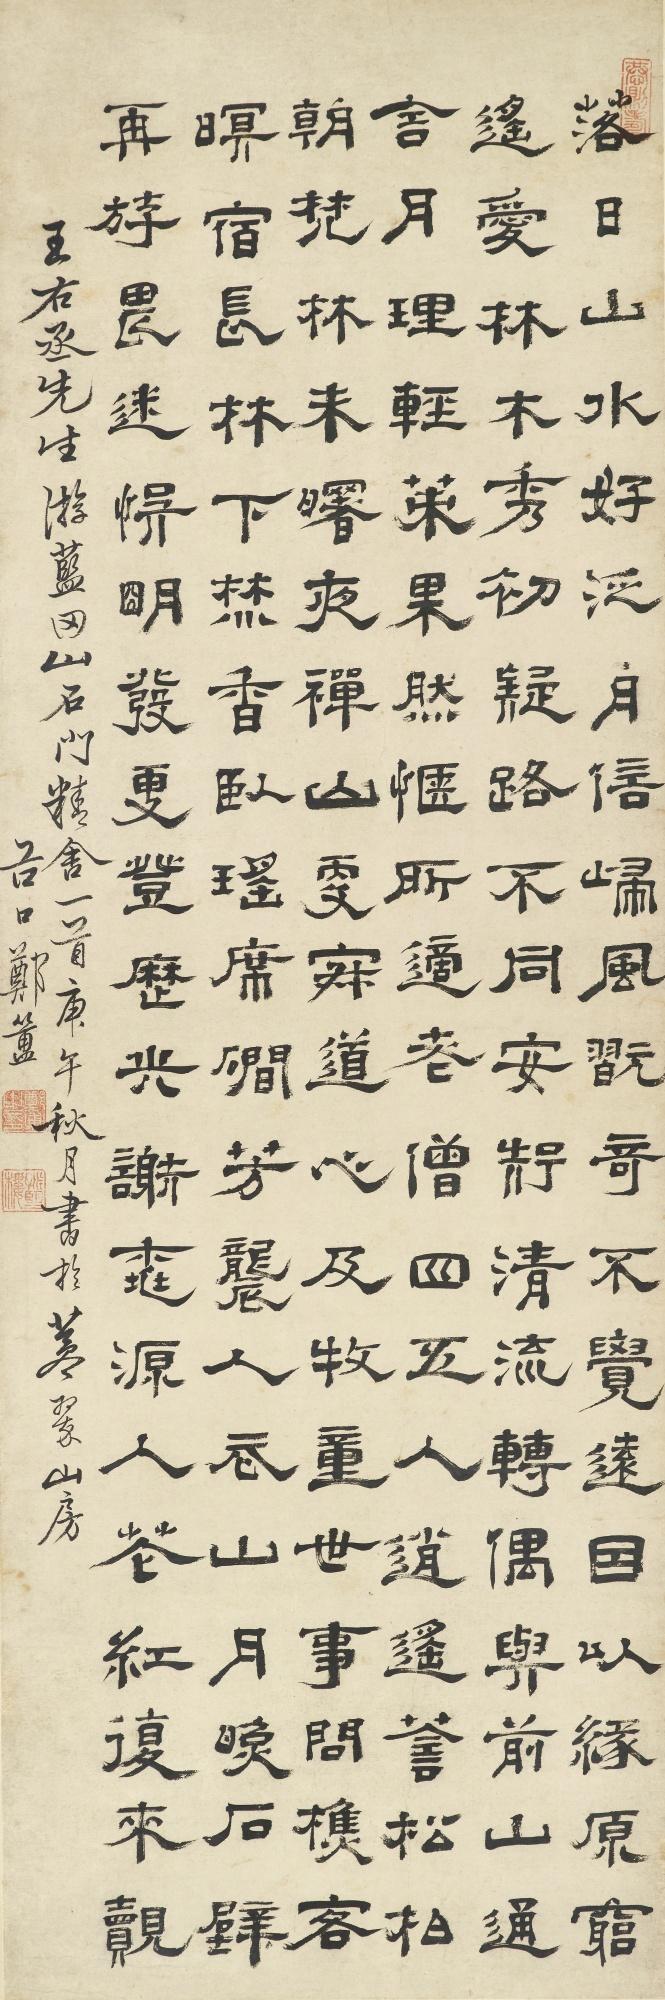 落日山水好泛舟信歸風翫奇不覺遠因以緣原窮
遙愛林木秀初疑路不同安知清流轉偶與前山通
舍舟理輕策果然愜所適老僧四五人逍遙蔭松柏
朝梵林未曙夜禪山更寂道心及牧童世事問樵客
暝宿長林下焚香臥瑤席磵芳襲人衣山月映石壁
再尋畏迷悞明發更登歷笑謝桃源人花紅復來覿
王右丞先生游藍田山石門精舍一首庚午秋月書於蒼翠山房
谷口鄭簠